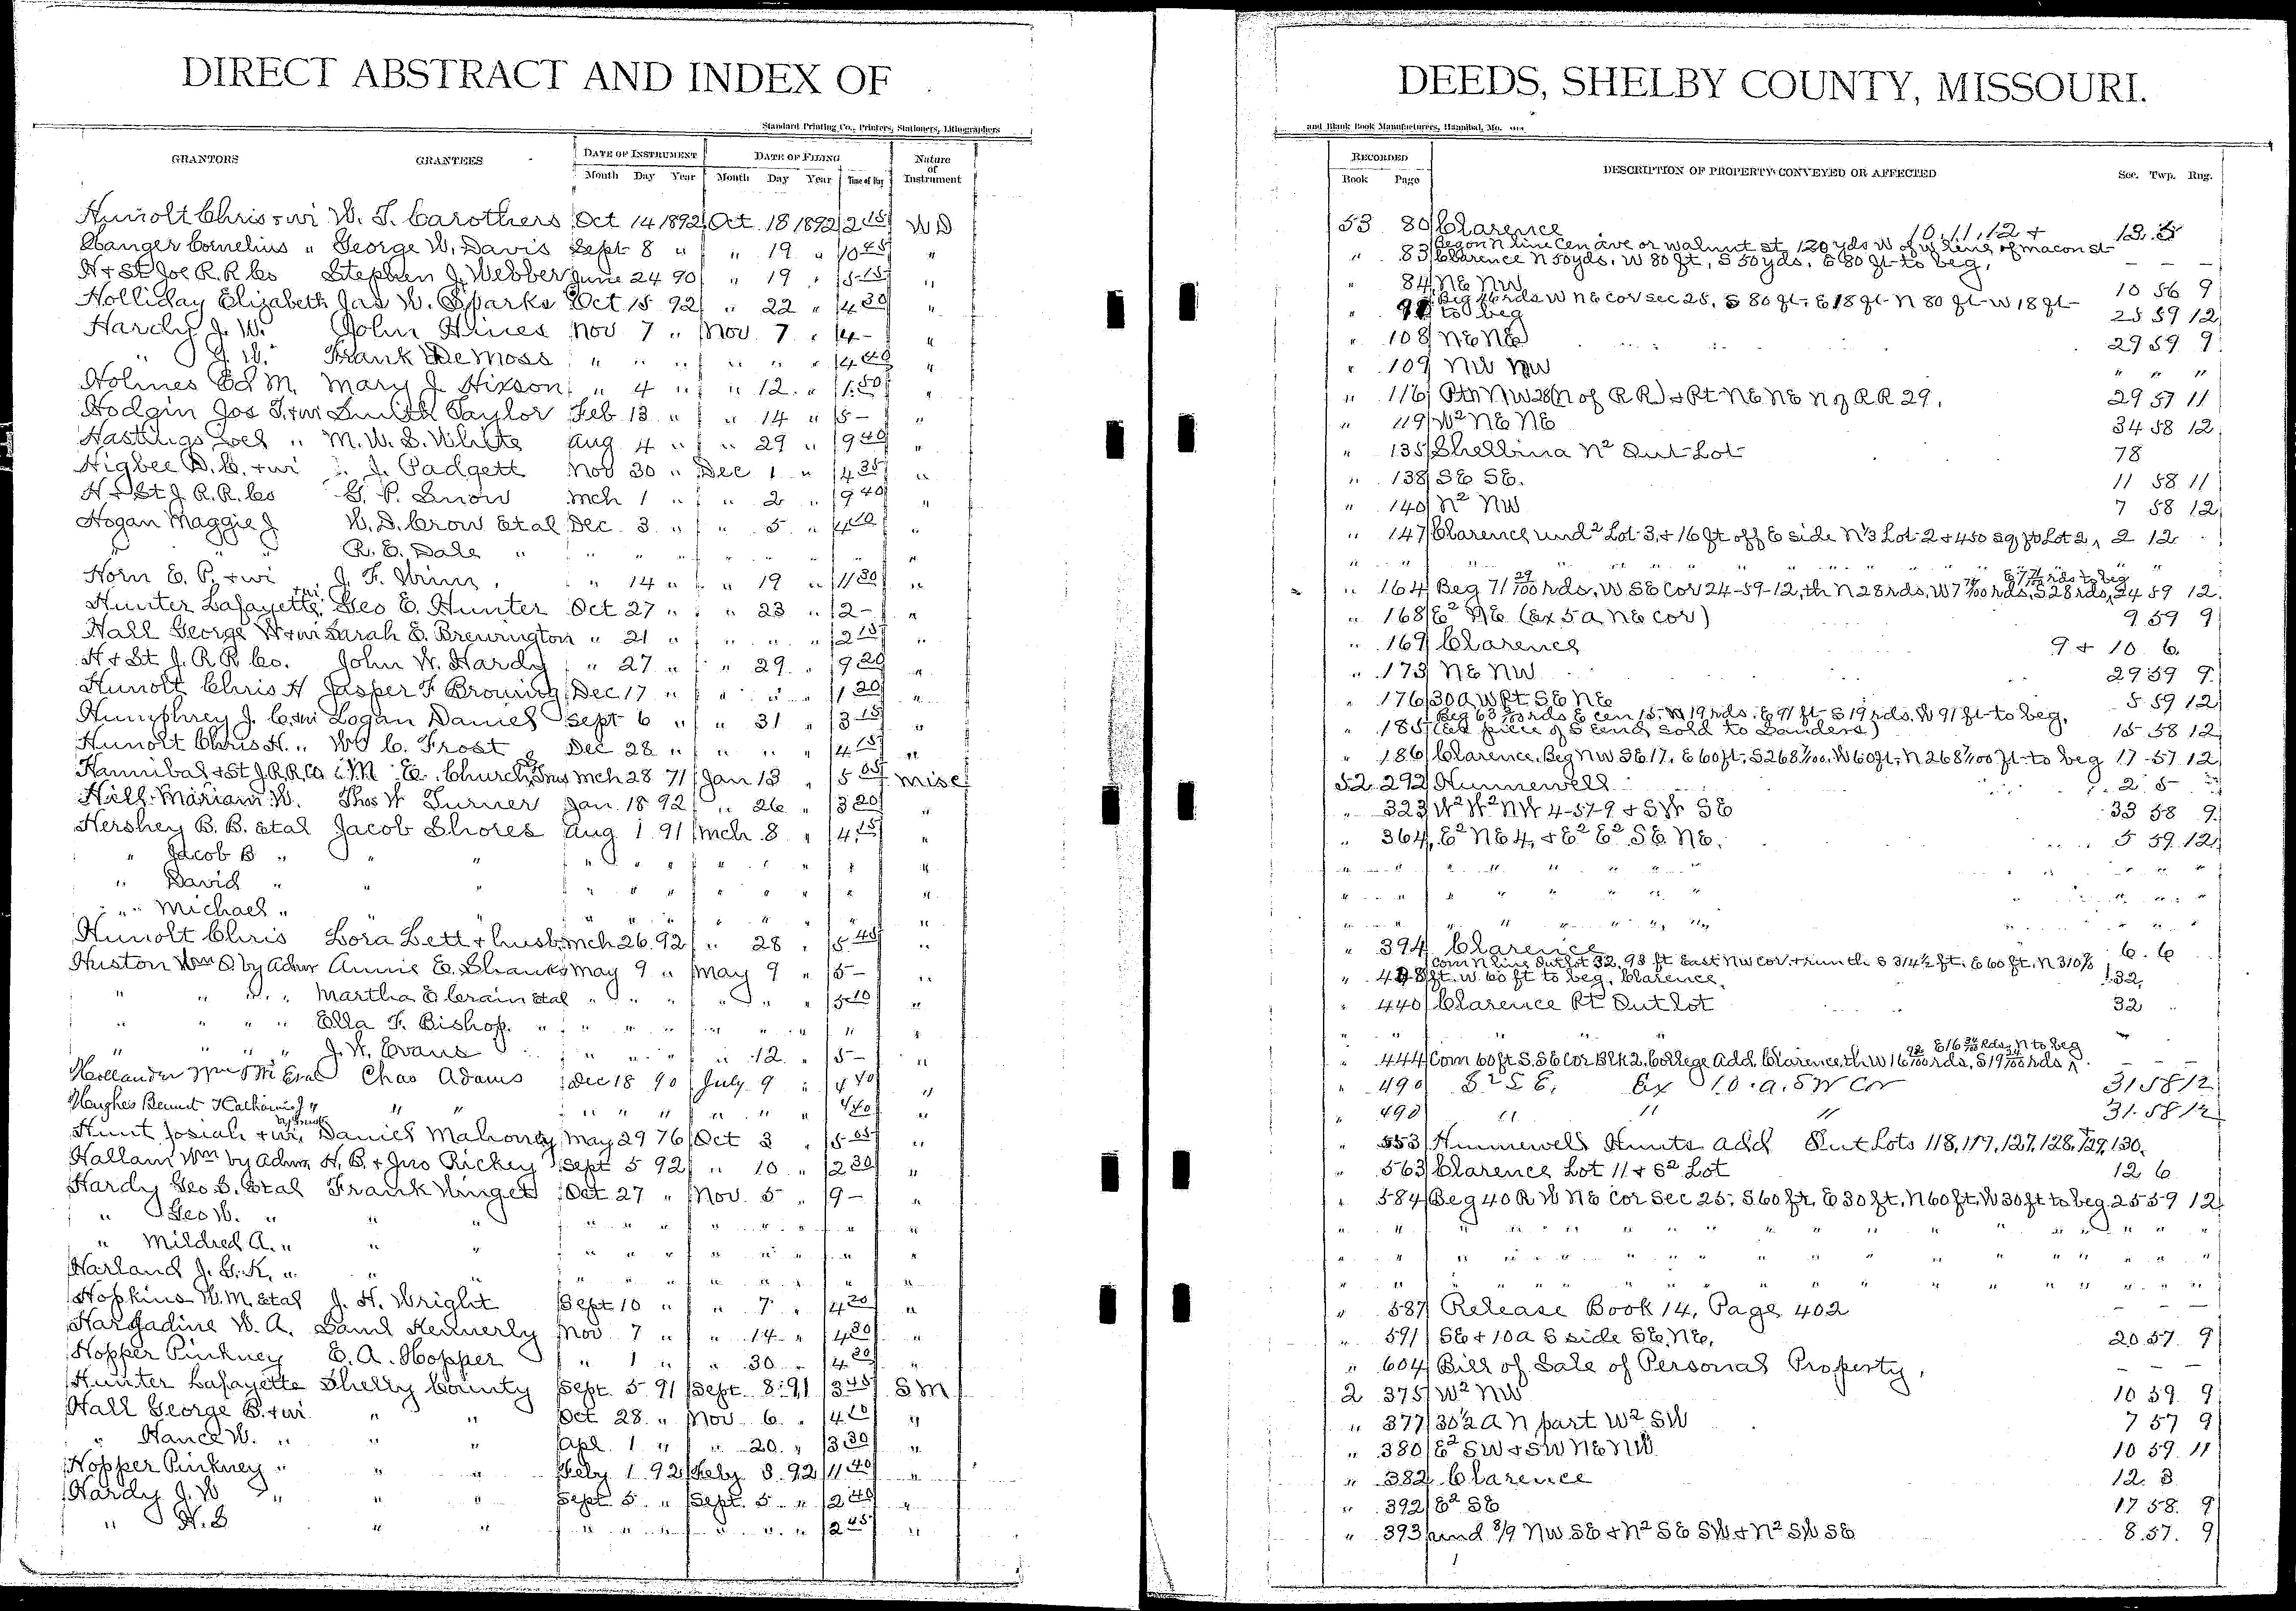 DIRECT ABSTRACT AND INDEX OF
Standard Printing Co., Printers, Stationers, Lithographers
GRANTORS GRANTEES DATE OF INSTRUMENT DATE OF FILING Nature of Instrument
Month Day Year Month Day Year Time of Day
Hunolt Chris + wi W. T. Carothers Oct 14 1892 Oct. 18 1892 2 15 WD
Cornelius " George W. Davis Sept 8 " " 19 " 10 45 "
H + St Joe R.R Co Stephen J. Webber June 24 90 " 19 " 5 15 "
Holliday Elizabeth Jas W. Sparks Oct 15 92 " 22 " 4 30 "
Hardy J. W. John Hines Nov 7 " Nov 7 " 4 - "
" J. W. Frank DeMoss " " " " " " 4 40 "
Holmes Ed M. Mary J. Hixson " 4 " " 12 " 1 50 "
Hodgin Jos T. + wi Smith Taylor Feb 13 " " 14 " 5 - "
Hastings Joel " M. W. S. White Aug 4 " " 29 " 9 40 "
Higbee D. C. + wi J. Padgett Nov 30 " Dec 1 " 4 35 "
H + St J. R.R. Co G. P. Snow Mch 1 " " 2 " 9 40 "
Hogan Maggie J W. D. Crow Etal Dec. 3 " " 5 " 4 10 "
" " " R. E. Dale " " " " " " " " "
Horn E. P. + wi J. F. " 14 " " 19 " 11 30 "
Hunter Lafayette + wi Geo E. Hunter Oct 27 " " 23 " 2 - "
Hall George W + wi Sarah E. Brewington " 21 " " " " 2 15 "
H + St J. R R Co. John W. Hardy " 27 " " 29 " 9 20 "
Hunolt Chris H Jasper F Browning Dec 17 " " " " 1 20 "
Humphrey J. C. + wi Logan Daniel Sept 6 " " 31 " 3 15 "
Hunolt Chris H. " Wm C. Frost Dec 28 " " " " 4 15 "
Hannibal + St J.R.R. Co M. E. Church Trus Mch 28 71 Jan 13 " 5 05 Misc
Hill Mariam W. Thos W Turner Jan. 18 92 " 26 " 3 20 "
Hershey B. B. Etal Jacob Shores Aug 1 91 Mch 8 " 4 15 "
" Jacob B " " " " " " " " " " "
" David " " " " " " " " " " "
" Michael " " " " " " " " " " "
Hunolt Chris Lora Lett + husb Mch 26 92 " 28 " 5 45 "
Huston Wm O. by Admr Annie E. Shanks May 9 " May 9 " 5 - "
" " " " Martha E Crain Etal " " " " " " 5 10 "
" " " " Ella F. Bishop " " " " " " " " "
" " " " J. W. Evans " " " " 12 " 5 - "
Hollander Wm Etal Chas Adams Dec 18 90 July 9 " 4 40 "
Hughes Bennet + Catharine J " " " " " " " " " 4 40 "
Hunt Josiah + wi Daniel Mahoney May 29 76 Oct 3 " 5 05 "
Hallam Wm by Admr H. B. + Jno Rickey Sept 5 92 " 10 " 2 30 "
Hardy Geo S. Etal Frank Oct 27 " Nov. 5 " 9 - "
" Geo W. " " " " " " " " " " "
" Mildred A. " " " " " " " " " " "
Harland J. G. K. " " " " " " " " " " "
Hopkins W. M. Etal J. H. Wright Sept 10 " " 7 " 4 20 "
Hargadine W. A. Saml Kennerly Nov. 7 " " 14 " 4 30 "
Hopper Pinkney E. A. Hopper " 1 " " 30 " 4 20 "
Hunter Lafayette Shelby County Sept. 5 91 Sept. 8 91 3 45 SM
Hall George B. + wi " " Oct 28 " Nov. 6 " 4 10 "
" Hance W. " " " Apl. 1 " " 20 " 3 30 "
Hopper Pinkney " " " Feby 1 92 Feby 8 92 11 40 "
Hardy J. W " " " Sept 5 " Sept. 5 " 2 40 "
" H. S " " " " " " " " 2 45 "
DEEDS, SHELBY COUNTY, MISSOURI.
and Blank Book Manufacturers, Hannibal, Mo.
RECORDED DESCRIPTION OF PROPERTY CONVEYED OR AFFECTED Sec. Twp. Rng.
Book Page
53 80 Clarence 10, 11, 12 +
" 83 Beg on N line Cen ave or Walnut st 120 yds W of W line of Macon st
Clarence N 50 yds. W 80 ft, S 50 yds. E 80 ft to beg. - - -
" 84 NE NW 10 56 9
Beg rds W NE cor sec 25, S 80 ft, E 18 ft N 80 ft W 18 ft
to beg 25 59 12
" 108 NE NE 29 59 9
" 109 NW NW " " "
" 116 Pt N NW 28 (N of R R) + Pt NE NE N of R R 29. 29 57 11
" 119 W2 NE NE 34 58 12
" 135 Shelbina N2 Out Lot 78
" 138 SE SE. 11 58 11
" 140 N2 NW 7 58 12
" 147 Clarence und 2 Lot 3, + 16 ft off E side N 1/3 Lot 2 + 450 sq ft Lot 2, 2 12
" " " " " " " " " "
" 164 Beg 71 29/100 rds, W SE Cor 24-59-12, th N 28 rds, W 7 /100 rds, S 28 rds, E 7 rds to beg 24 59 12
" 168 E2 NE (Ex 5 a NE cor) 9 59 9
" 169 Clarence 9 + 10 6
" 173 NE NW 29 59 9
" 176 30 a W Pt SE NE 5 59 12
" 185 Beg 63 rds E cen 15, N 19 rds. E 91 ft S 19 rds, W 91 ft to beg.
(Ex piece of S end sold to Sanders) 15 58 12
" 186 Clarence, Beg NW SE 17, E 60 ft, S 268 7/100, W 60 ft, N 268 7/100 ft to beg 17 57 12
52 292 Hunnewell 2 5
" 323 W2 W2 NW 4-57-9 + SW SE 33 58 9
" 364 E2 NE 4, + E2 E2 SE NE. 5 59 12
" " " " " " " " " "
" " " " " " " " " "
" " " " " " " " " "
" 394 Clarence 6 6
Com N line Outlot 32, 93 ft East NW cor + run th S 314 1/2 ft. E 60 ft, N 310
ft. W. 60 ft to beg. Clarence. 32
" 440 Clarence Pt Out lot 32
" " " " "
" 444 Com 60 ft S. SE Cor Blk 2. College Add. Clarence, th W 16 /100 rds, S 19 /100 rds E 16 rds, N to beg - - -
" 490 S2 SE. Ex 10 a. SW Cor 31 58 12
" 490 " " " 31 58 12
" 553 Hunnewell Hunts Add Out Lots 118, 119, 127, 128, 129, 130.
" 563 Clarence Lot 11 + S2 Lot 12 6
" 584 Beg 40 R W NE Cor Sec 25; S 60 ft, E 30 ft, N 60 ft, W 30 ft to beg. 25 59 12
" " " " " " " " " " " " " " " "
" " " " " " " " " " " " " " " "
" " " " " " " " " " " " " " " "
" 587 Release Book 14, Page 402 - - -
" 591 SE + 10 a S side SE NE. 20 57 9
" 604 Bill of Sale of Personal Property, - - -
2 375 W2 NW 10 59 9
" 377 30 1/2 A N part W2 SW 7 57 9
" 380 E2 SW + SW NE NW 10 59 11
" 382 Clarence 12 3
" 392 E2 SE 17 58 9
" 393 und 8/9 NW SE + N2 SE SW + N2 SW SE 8 57 9